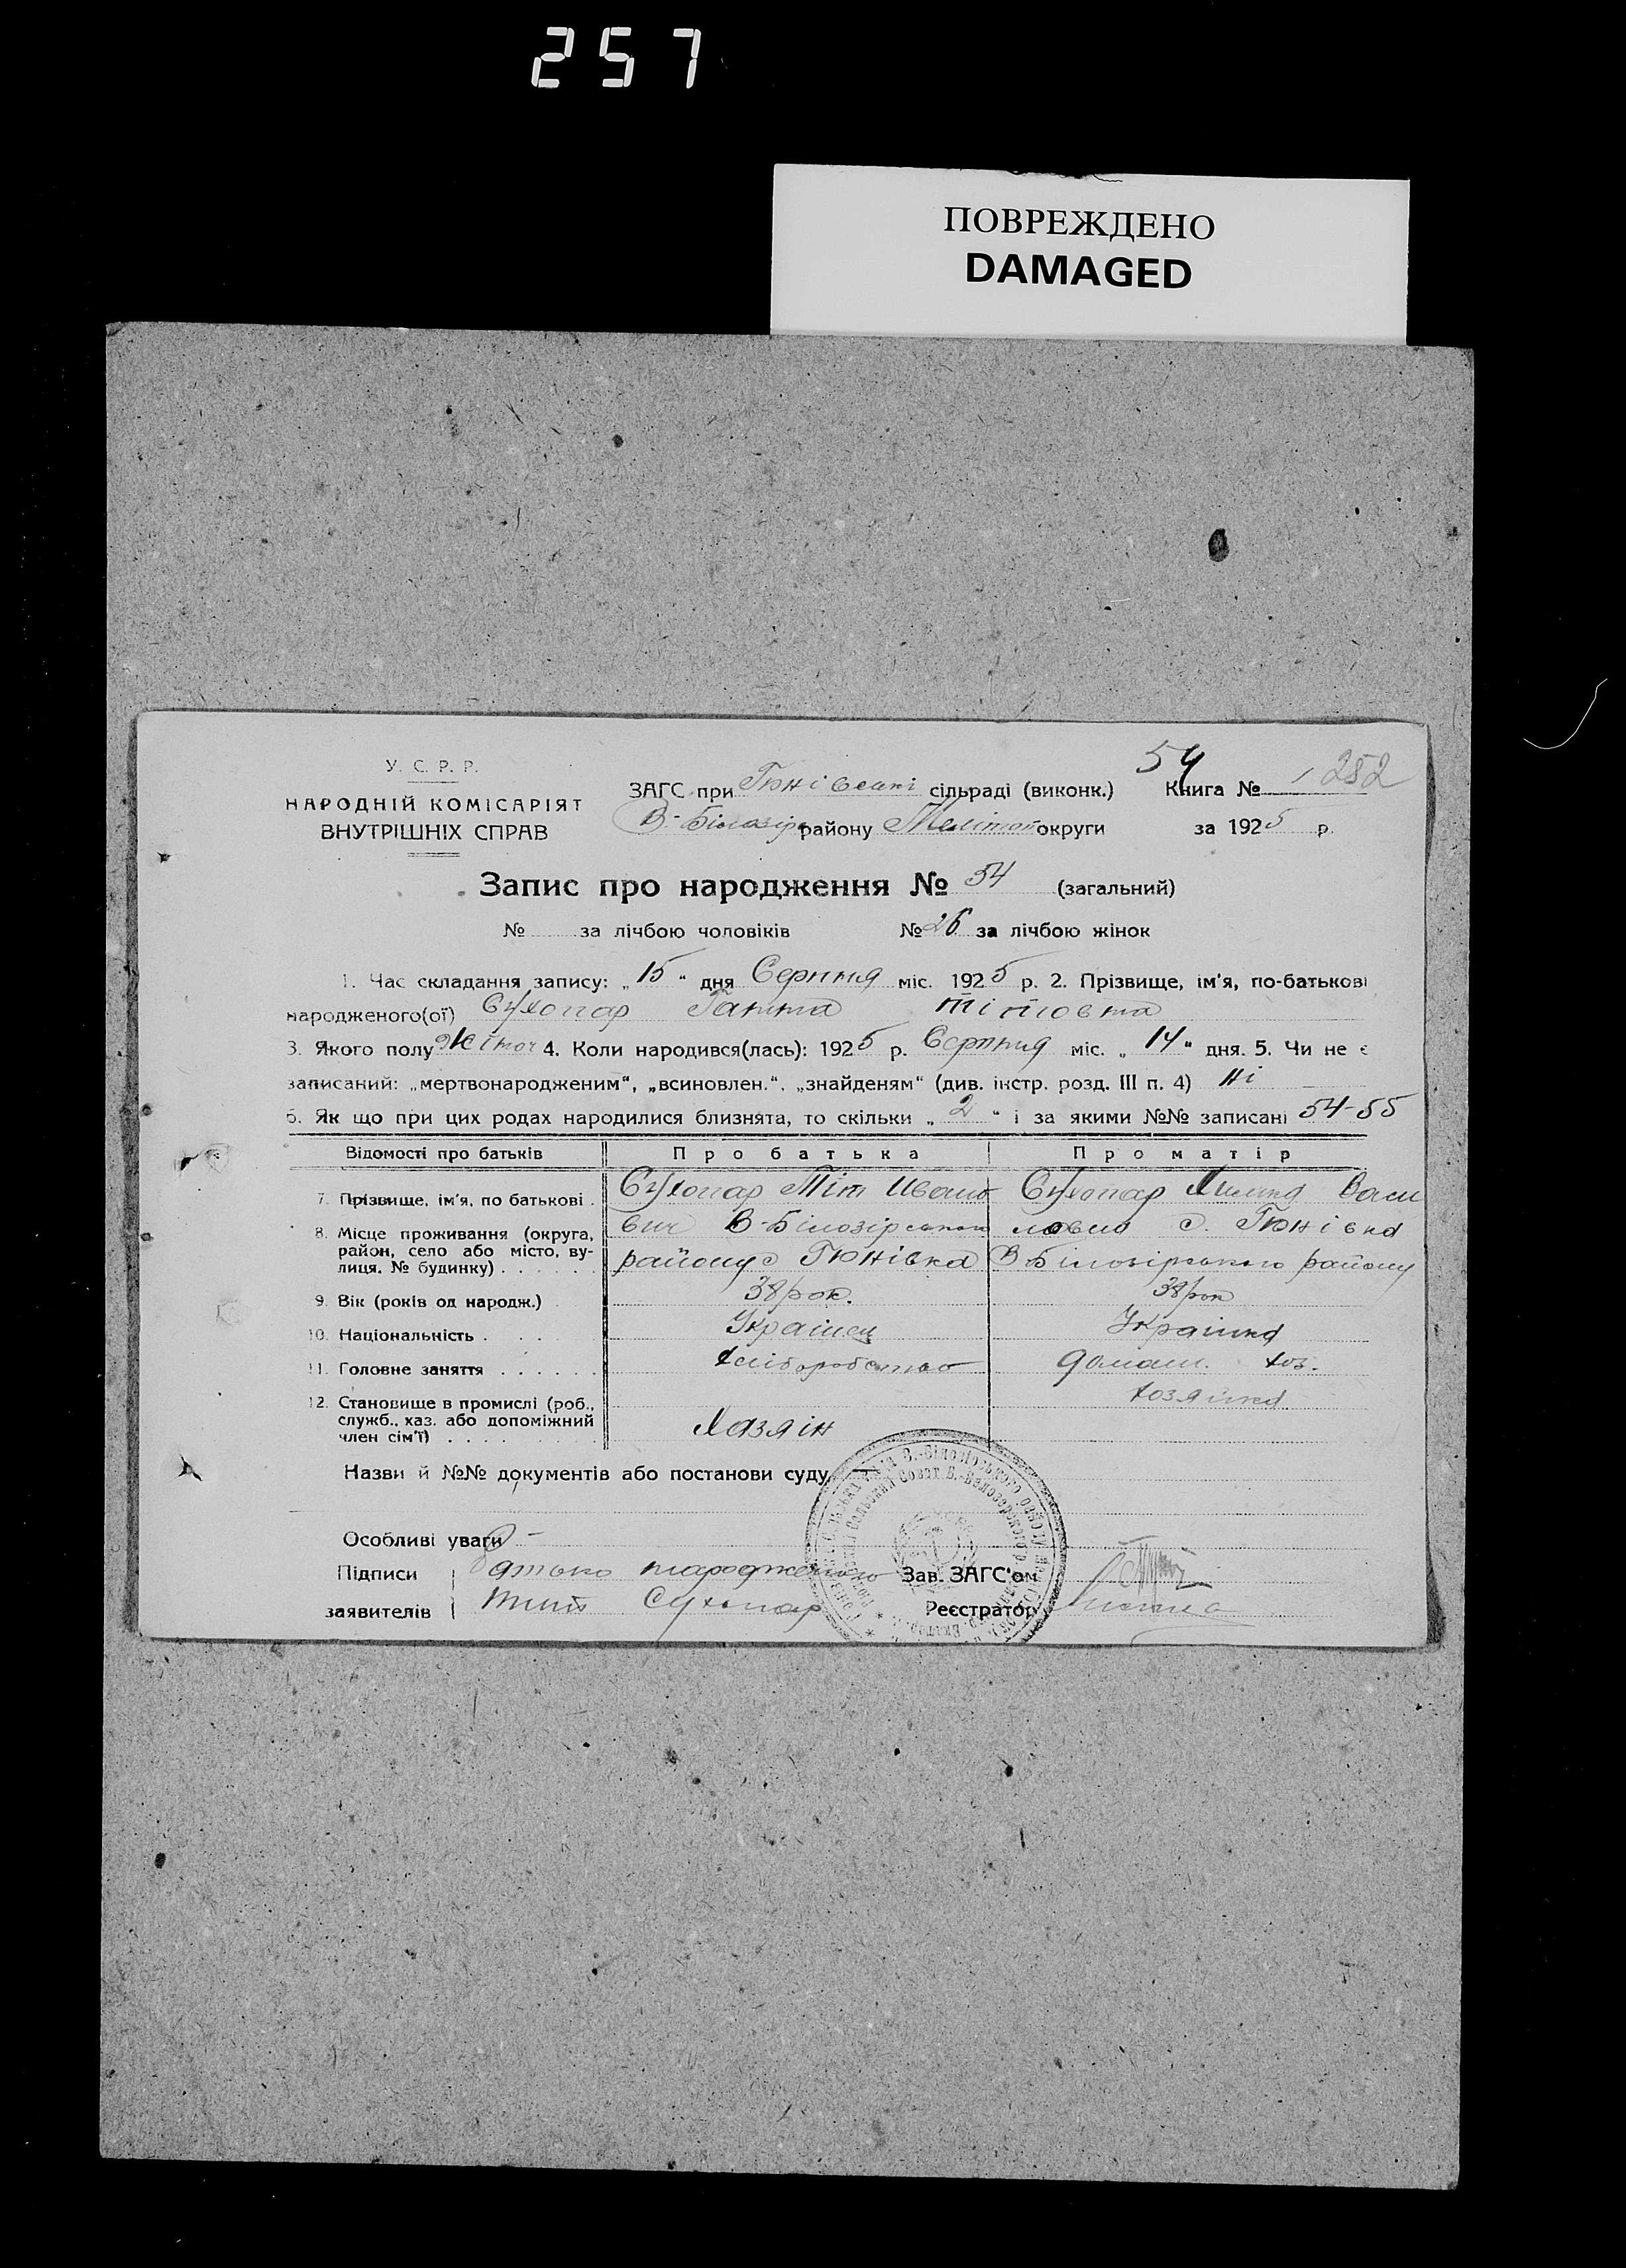 257
ПОВРЕЖДЕНО
DAMAGED
У. С. Р. Р.
НАРОДНІЙ КОМІСАРІЯТ
ВНУТРІШНІХ СПРАВ
54
ЗАГС при Гюнівскі сільраді (виконк.) Книга № 252
В-Білозір району Мелітоп округи за 1925 р.
Запис про народження № 54 (загальний)
№ за лічбою чоловіків № 26 за лічбою жінок
1. Час складання запису: „15“ дня Серпня міс. 1925 р. 2. Прізвище, ім'я, по-батькові
народженого(ої) Сухопар Ганна Тітовна
3. Якого полу Жіноч 4. Коли народився(лась): 1925 р. Серпня міс. „14“ дня. 5. Чи не є
записаний: „мертвонародженим“, „всиновлен.“, „знайденям“ (див. інстр. розд. III п. 4) Ні
6. Як що при цих родах народилися близнята, то скільки „2“ і за якими №№ записані 54-55
Відомості про батьків Про батька Про матір
7. Прізвище, ім'я, по батькові . Сухопар Тіт Ивано Сухопар Васи
8. Місце проживання (округа, район, село або місто, вулиця, № будинку) . . . . . . вич В-Білозірського ловна с. Гюнівка
району с Гюнівка В-Білозірського району
9. Вік (років од народж.) 38 рок. 38 рок
10. Національність . . . Українец Украінка
11. Головне заняття . . . . . . хліборобство домаш. хоз.
12. Становище в промислі (роб., служб., хаз. або допоміжний член сім'ї) . . . . Хазяін хозяйка
Назви й №№ документів або постанови суду —
Особливі уваги —
Підписи батько народженого Зав. ЗАГС'ом
заявителів Тит Сухопар Реєстратор